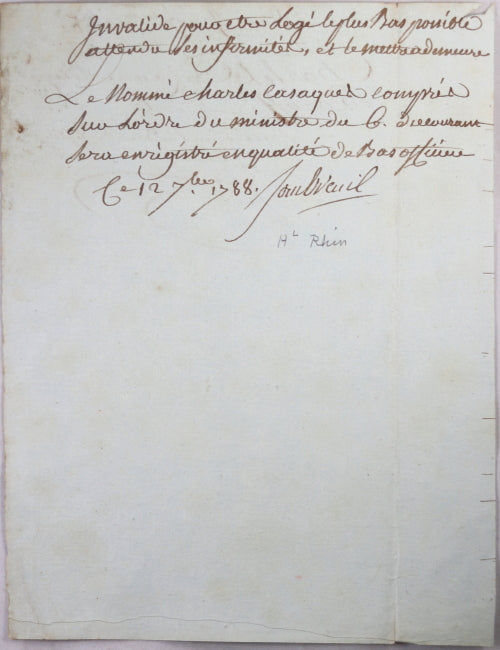 Invalide pour etre Logé le plus Bas possible
attendu ses infirmités, et le mettre a demeure
Le Nommé charles casaques compris
Sur L'ordre du ministre du 6. du courant
Sera enregistré en qualité de Bas officier
Ce 12 7.bre 1788.
Ht Rhin